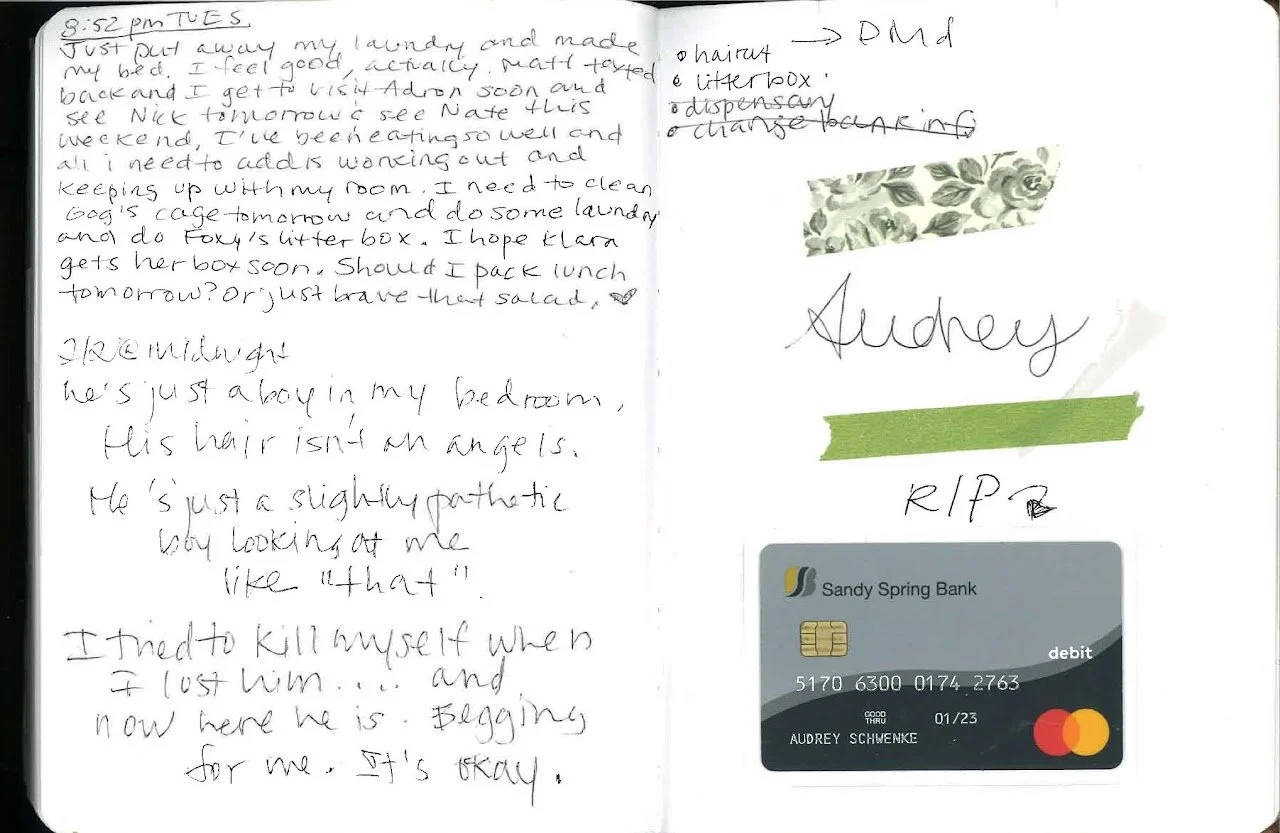 8:52 pm TUES.
Just put away my laundry and made
my bed. I feel good, actually. Matt texted
back and I get to visit Adron soon and
see Nick tomorrow & see Nate this
weekend, I've been eating so well and
all i need to add is working out and
keeping up with my room. I need to clean
Gog's cage tomorrow and do some laundry
and do Foxy's litter box. I hope Klara
gets her box soon. Should I pack lunch
tomorrow? Or just brave that salad.
@ midnight
he's just a boy in my bedroom,
His hair isn't an angels.
He's just a slightly pathetic
boy looking at me
like "that".
I tried to kill myself when
I lost him.... and
now here he is. Begging
for me. It's okay.
→ DMd
• haircut
• litterbox
• dispensary
• change banking
Audrey
RIP
Sandy Spring Bank
debit
5170 6300 0174 2763
GOOD
THRU 01/23
AUDREY SCHWENKE